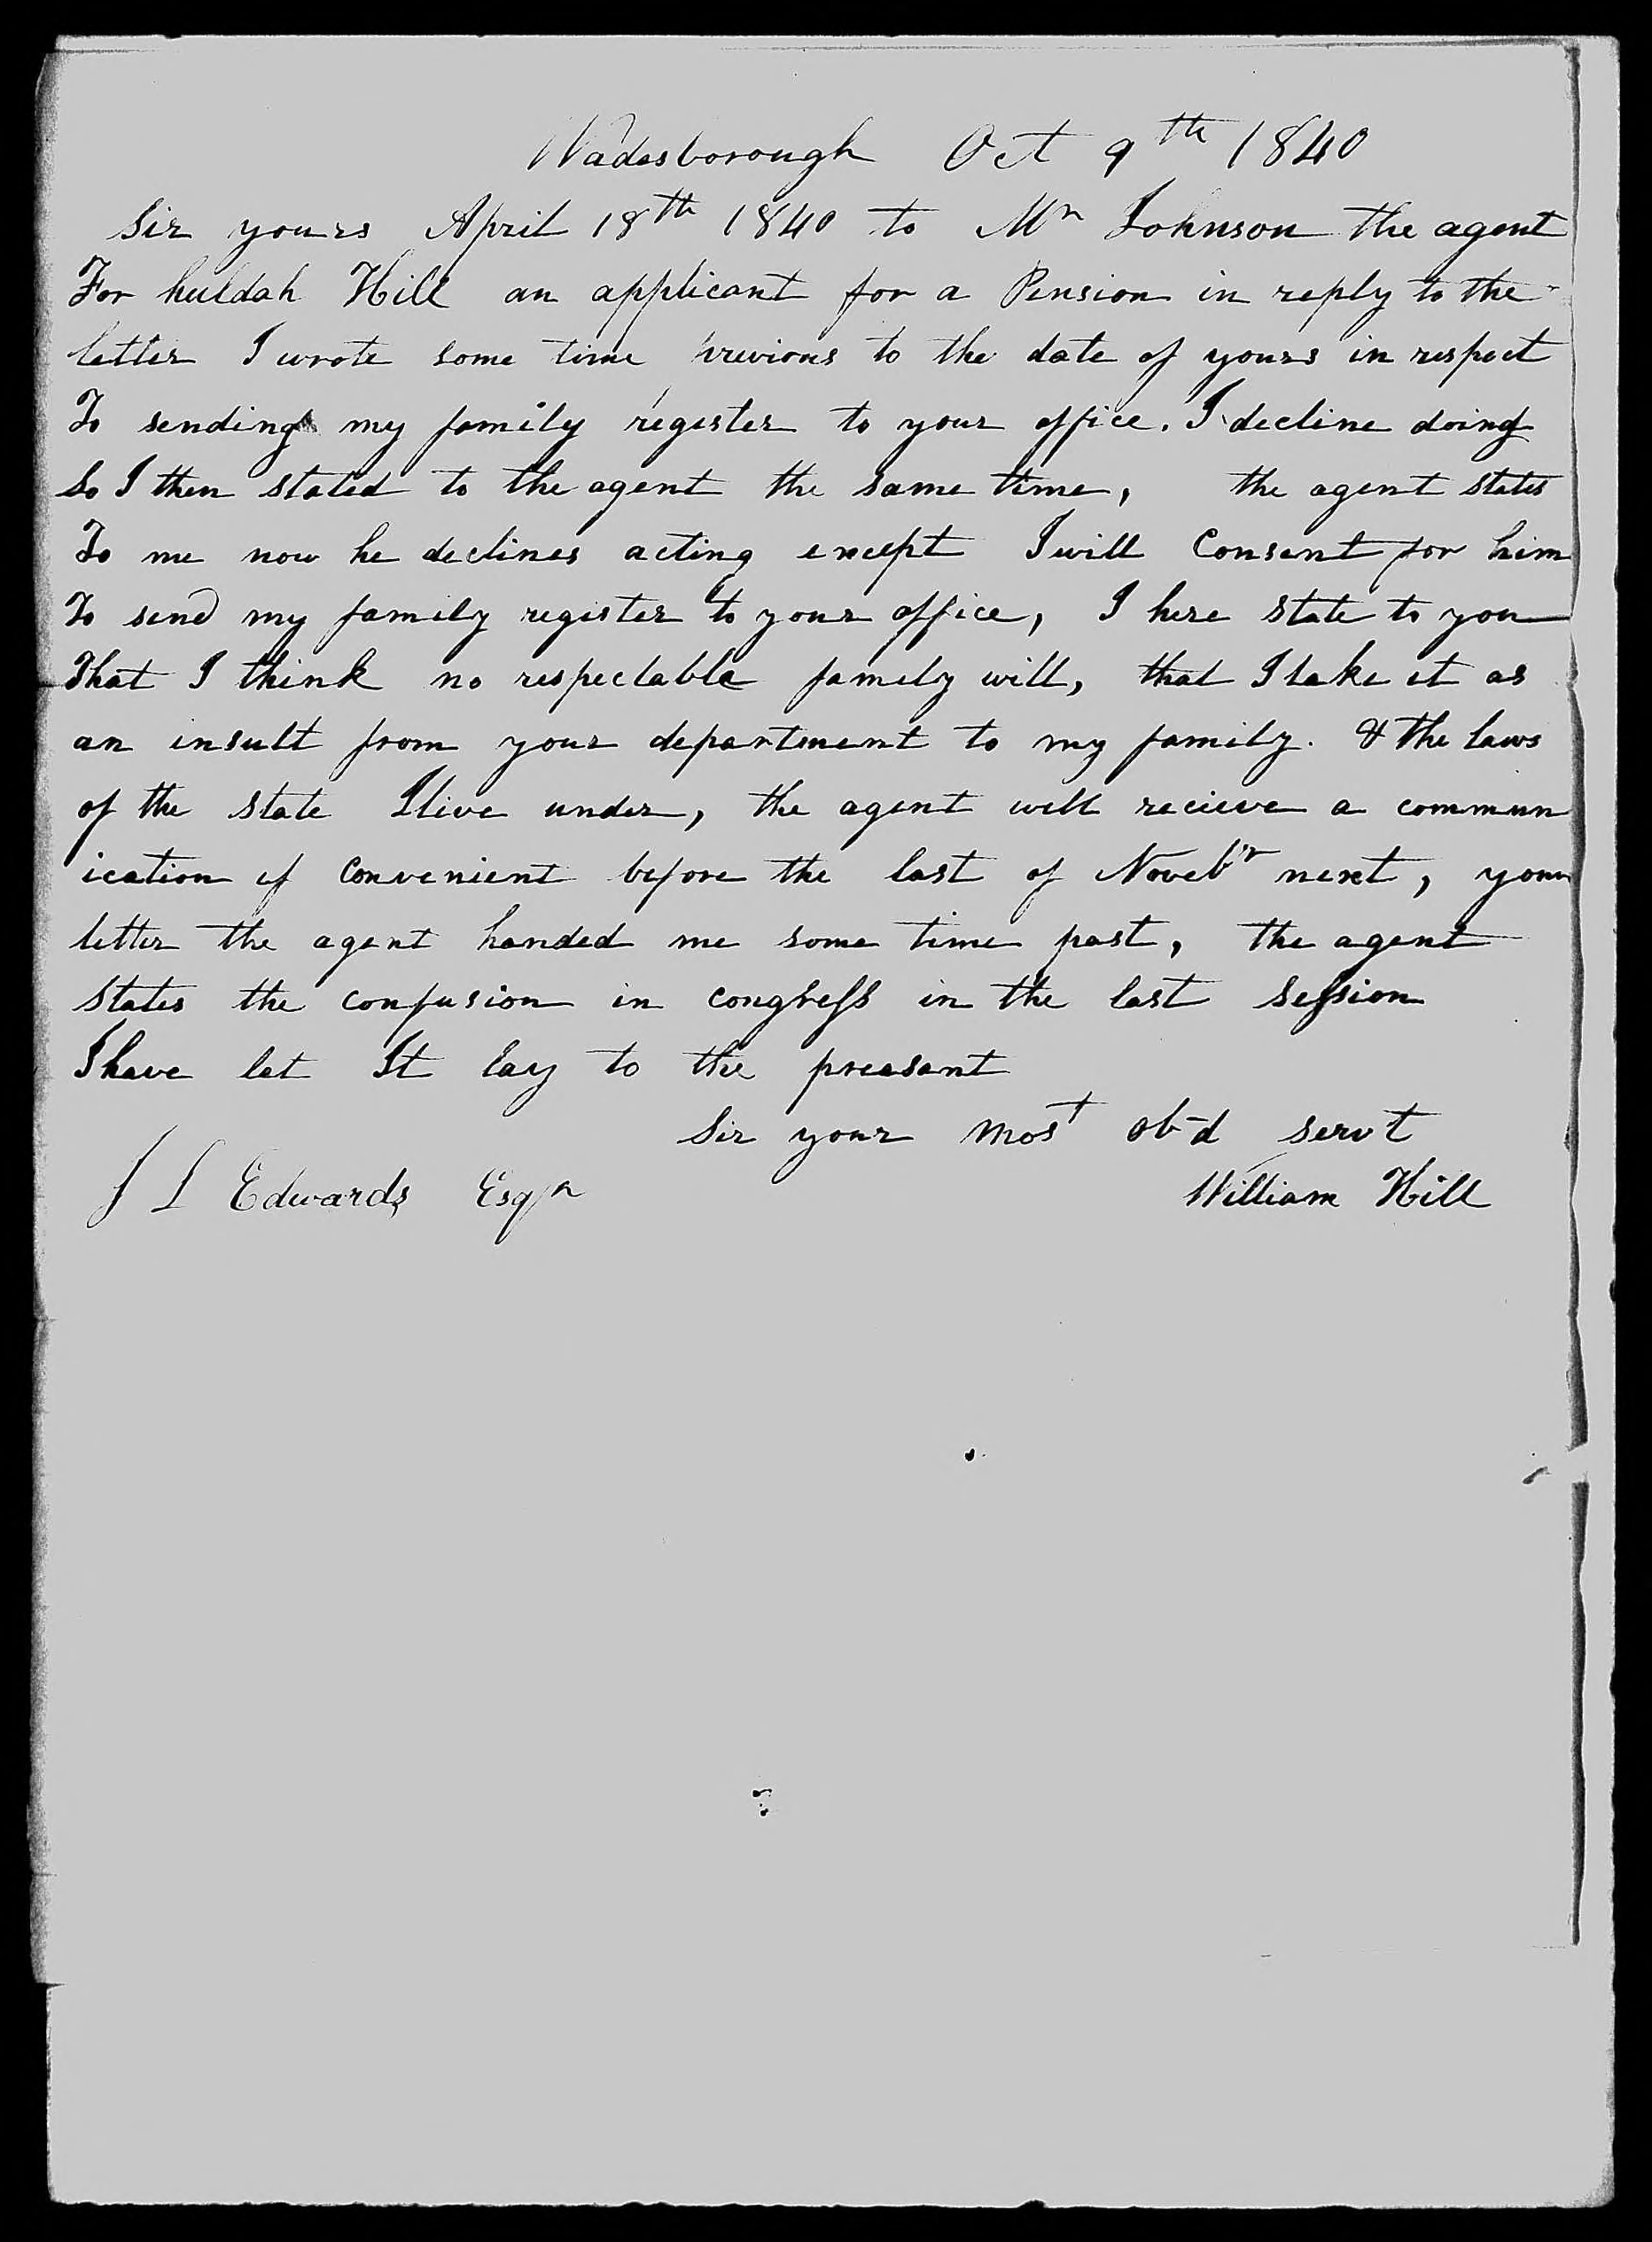 Wadesborough Oct 9th 1840
Sir yours April 18th 1840 to Mr Johnson the agent
For huldah Hill an applicant for a Pension in reply to the
letter I wrote some time previous to the date of yours in respect
To sending my family register to your office. I decline doing
So I then stated to the agent the same time, the agent states
To me now he declines acting except I will Consent for him
To send my family register to your office, I here state to you
That I think no respectable family will, that I take it as
an insult from your department to my family. & the laws
of the state I live under, the agent will recieve a commun
ication if Convenient before the last of Noveb'r next, your
letter the agent handed me some time past, the agent
States the confusion in congress in the last session
I have let It lay to the preasant
Sir your most ob-d serv't
J L Edwards Esqr William Hill